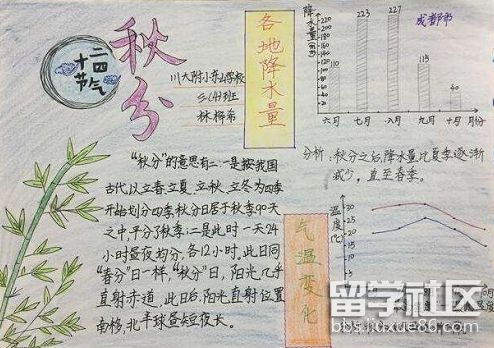 二四
十
节气
秋分
川大附小东山学校
三(4)班
各地降水量
降水量(mm)
220
200
180
160
140
120
100
80
60
40
110
223
227
115
40
成都市
六月 七月 八月 九月 十月 月份
分析：秋分之后，降水量比夏季逐渐
减少，直至春季。
“秋分”的意思有二：一是按我国
古代以立春、立夏、立秋、立冬为四季
开始划分四季，秋分日居于秋季90天
之中，平分了秋季；二是此时一天24
小时昼夜均分，各12小时，此日同
“春分”日一样，“秋分”日，阳光几乎
直射赤道，此日后，阳光直射位置
南移，北半球昼短夜长。
气温变化
温度(℃)
30
25
20
15
10
留学社区
bbs.liuxue86.com